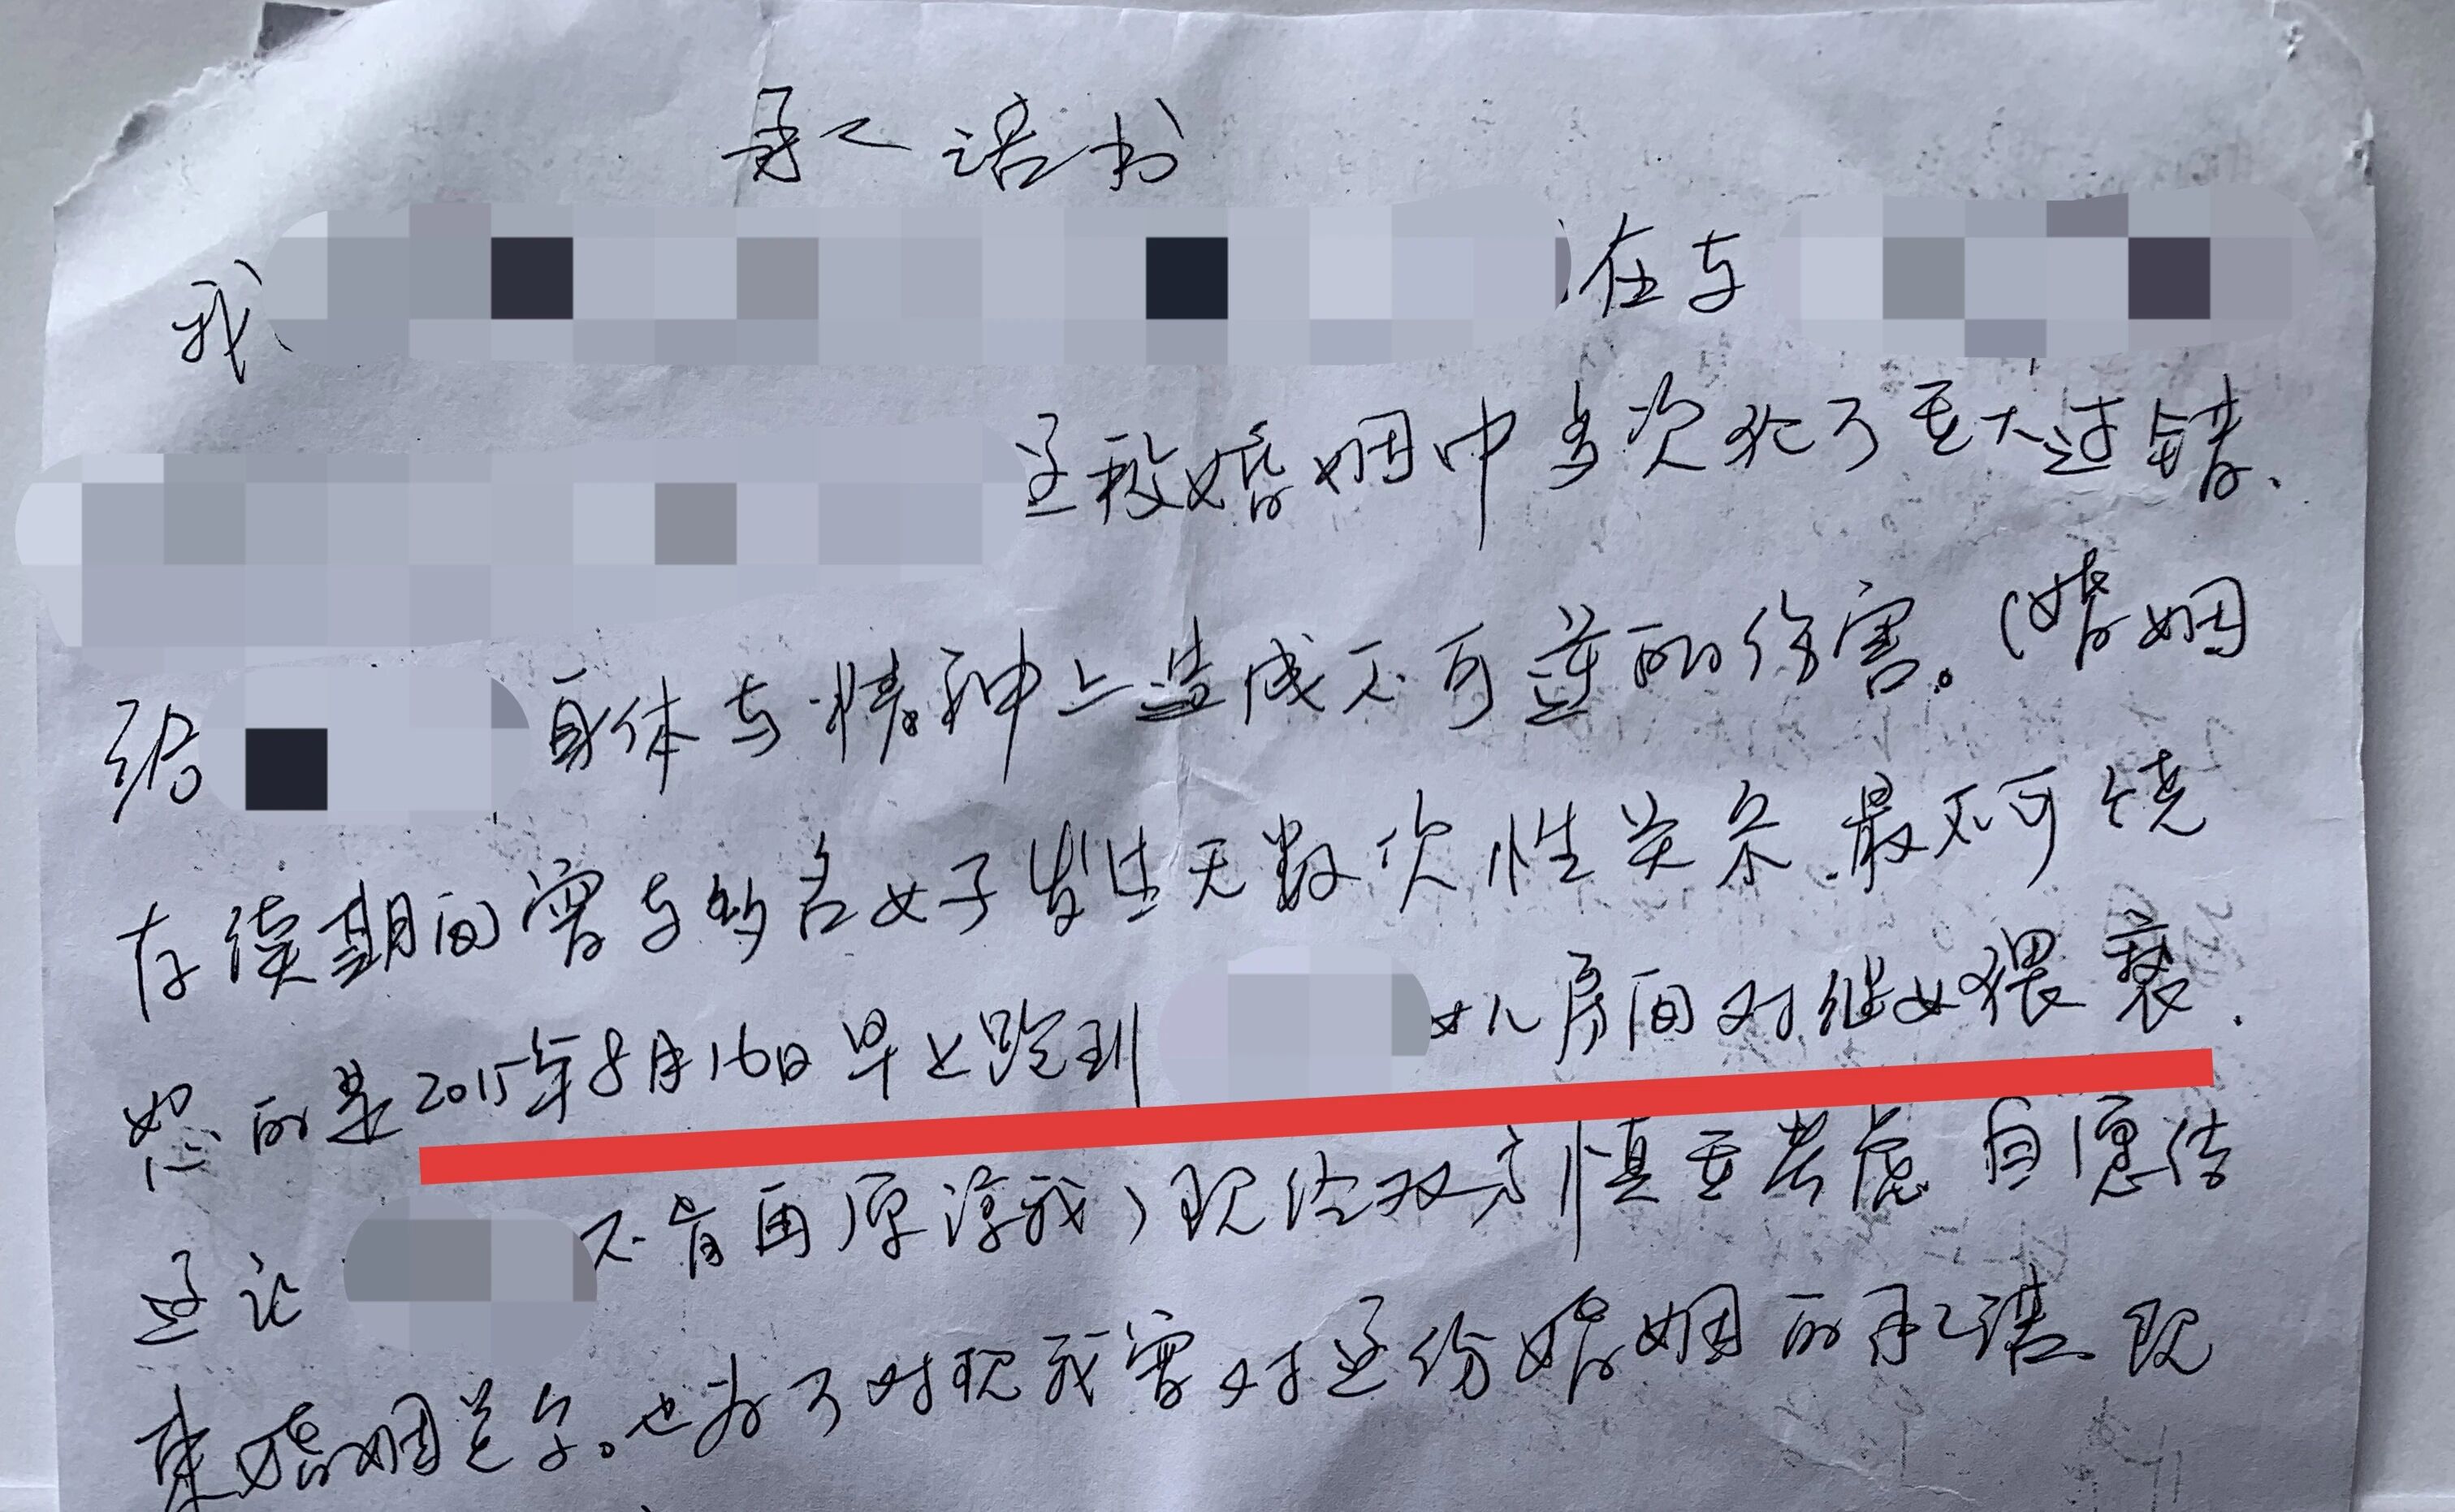 承诺书
我 在与
这段婚姻中多次犯了重大过错、
给 身体与精神上造成不可逆的伤害。(婚姻
存续期间曾与多名女子发生无数次性关系.最不可饶
恕的是2015年8月16日早上跑到 女儿房间对继女猥亵.
这让 不肯再原谅我)现经双方慎重考虑自愿结
束婚姻关系。也为了对现我曾对这份婚姻的承诺.现